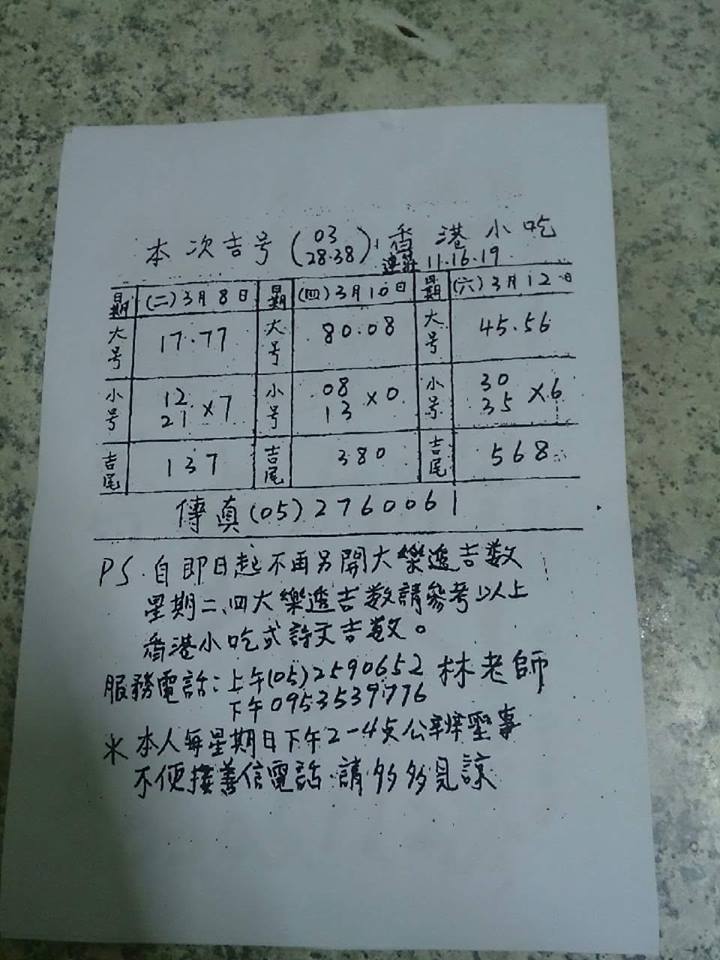 本次吉号(03 28.38)香港小吃
連莊 11.16.19
星期 (二)3月8日 星期 (四)3月10日 星期 (六)3月12日
大号 17.77 大号 80.08 大号 45.56
小号 12 21 ×7 小号 08 13 ×0 小号 30 35 ×6
吉尾 137 吉尾 380 吉尾 568
傳真(05)2760061
PS.自即日起不再另開大樂透吉数
星期二、四大樂透吉数請參考以上
香港小吃式詩文吉数。
服務電話:上午(05)2590652 林老師
下午0953539776
*本人每星期日下午2-4点公辦聖事
不便接善信電話.請多多見諒